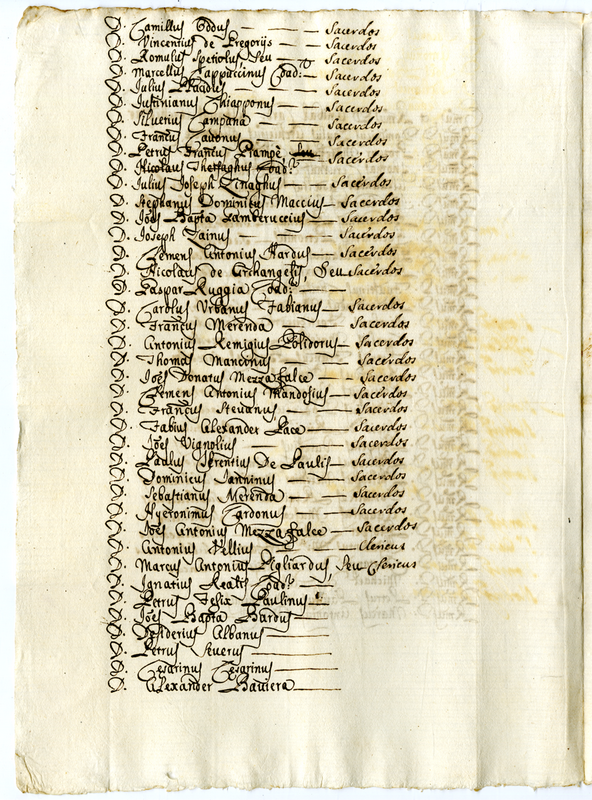 D. Camillus Oddus — Sacerdos
D. Vincentius de Gregorijs — Sacerdos
D. Romulus Spetiolus Seu — Sacerdos
D. Marcellus Cappuccinus Coad: — Sacerdos
D. Julius — Sacerdos
D. Justinianus Chiapponus — Sacerdos
D. Silverius Campana — Sacerdos
D. Francus — Sacerdos
D. Petrus Francus Ciampè — Sacerdos
D. Nicolaus Coad:
D. Julius Joseph — Sacerdos
D. Stephanus Dominicus Maccius — Sacerdos
D. Joēs Bapta Lamberuccius — Sacerdos
D. Joseph Zainus — Sacerdos
D. Clemens Antonius Nardus — Sacerdos
D. Nicolaus de Archangelis, Seu Sacerdos
D. Gaspar Ruggia Coad: —
D. Carolus Urbanus Fabianus — Sacerdos
D. Francus Merenda — Sacerdos
D. Antonius Remigius Polidorus — Sacerdos
D. Thomas Manconus — Sacerdos
D. Joēs Donatus Mezza falce — Sacerdos
D. Clemens Antonius Mandosius — Sacerdos
D. Francus Stevanus — Sacerdos
D. Fabius Alexander Pace — Sacerdos
D. Joēs Vignolius — Sacerdos
D. Paulus Terentius De Paulis — Sacerdos
D. Dominicus Janninus — Sacerdos
D. Sebastianus Merenda — Sacerdos
D. Hyeronimus Cardonus — Sacerdos
D. Joēs Antonius Mezza falce — Sacerdos
D. Antonius — Clericus
D. Marcus Antonius Pigliardus Seu Clericus
D. Ignatius Realis Coad: —
D. Petrus Felix Paulinus —
D. Joēs Bapta Bardus —
D. Desiderius Albanus —
D. Petrus Severus —
D. Cesarinus Cesarinus —
D. Alexander Baviera —